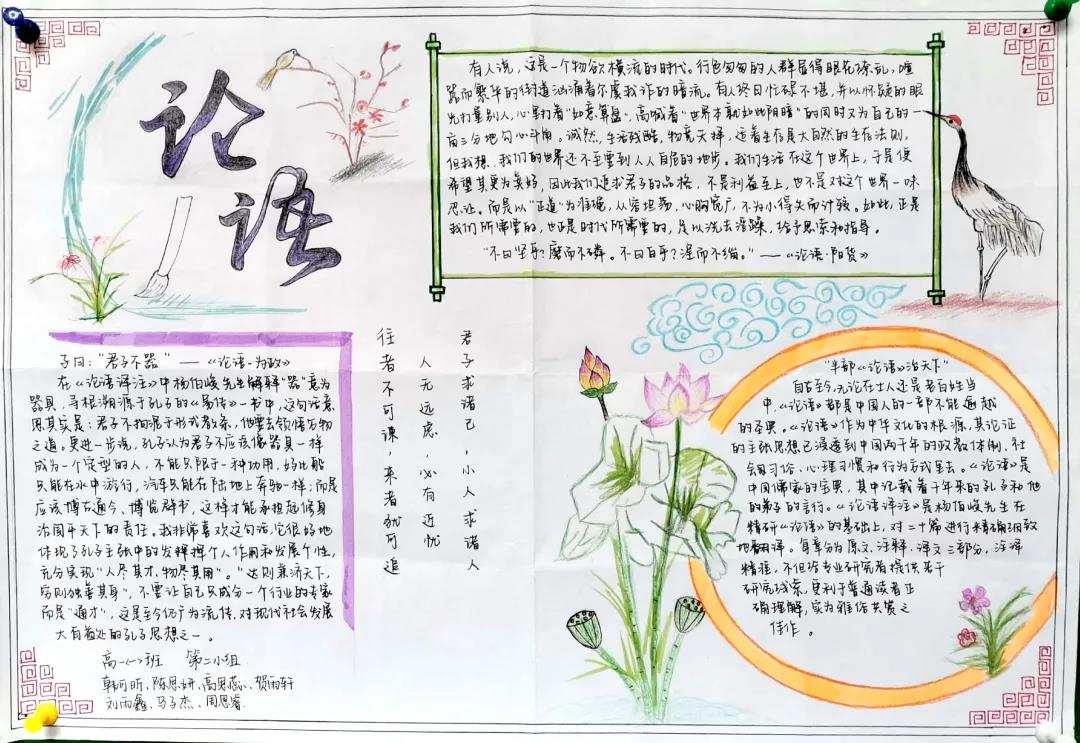 论语
有人说，这是一个物欲横流的时代。行色匆匆的人群显得眼花缭乱，喧
嚣而繁华的街道汹涌着尔虞我诈的暗流。有人终日忙碌不堪，并以怀疑的眼
光打量别人，心里打着"如意算盘"，高喊着"世界本就如此阴暗"的同时又为自己的
亩三分地勾心斗角。诚然，生活残酷，物竞天择，适者生存是大自然的生存法则，
但我想，我们的世界还不至要到人人自危的地步。我们生活在这个世界上，于是便
希望其更为美好，因此我们追求君子的品格，不是利益至上，也不是对这个世界一味
忍让。而是以"正道"为准绳，从容坦荡，心胸宽广，不为小得失而计较。如此，正是
我们所需要的，也正是时代所需要的，足以洗去浮躁，给予思索和指导。
"不曰坚乎？磨而不磷。不曰白乎？涅而不缁。"——《论语·阳货》
子曰："君子不器"——《论语·为政》
在《论语译注》中杨伯峻先生解释"器"意为
器具，寻根溯源于孔子的《易传》一书中，这句话意
思其实是：君子不拘泥于形式教条，他要去领悟万物
之道。更进一步说，孔子认为君子不应该像器具一样
成为一个定型的人，不能只限于一种功用，好比船
只能在水中游行，汽车只能在陆地上奔驰一样；而是
应该博古通今、博览群书，这样才能承担起修身
治国平天下的责任。我非常喜欢这句话，它很好地
体现了孔子主张中的发挥个人作用和发展个性，
充分实现"人尽其才，物尽其用"。"达则兼济天下，
穷则独善其身"，不要让自己只成为一个行业的专家
而是"通才"，这是至今仍广为流传、对现代社会发展
大有益处的孔子思想之一。
高一（一）班 第二小组
韩可昕、陈思妍、高思蕊、贺雨轩
刘雨鑫、马子杰、周思睿
君子求诸己，小人求诸人
人无远虑，必有近忧
往者不可谏，来者犹可追
"半部《论语》治天下"
自古至今，无论在士人还是老百姓当
中，《论语》都是中国人的一部不能逾越
的圣典。《论语》作为中华文化的根源，其论证
的主张思想已浸透到中国两千年的政教体制、社
会习俗、心理习惯和行为方式里去。《论语》是
中国儒家的宝典，其中记载着千年来的孔子和他
的弟子的言行。《论语译注》是杨伯峻先生在
精研《论语》的基础上，对二十篇进行精确细致
地翻译。每章分为原文、注释、译文三部分，注译
精准，不但给专业研究者提供若干
研究线索，更利于普通读者正
确理解，实为雅俗共赏之
佳作。